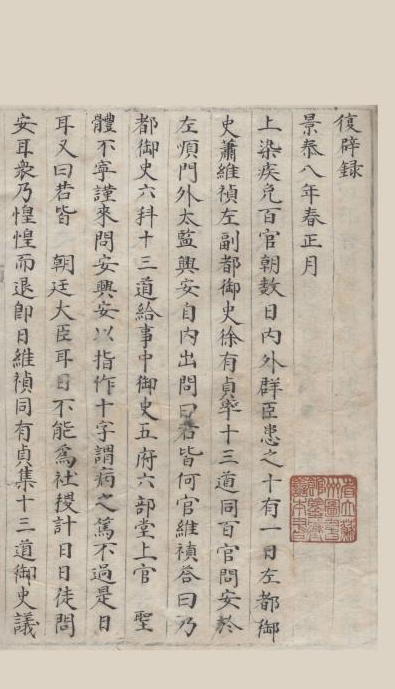 復辟録
景泰八年春正月
上染疾免百官朝数日内外群臣患之十有一日左都御
史蕭維禎左副都御史徐有貞率十三道同百官問安於
左順門外太監興安自内出問曰若皆何官維禎答曰乃
都御史六科十三道給事中御史五府六部堂上官 聖
體不寧謹來問安興安以指作十字謂病之篤不過是日
耳又曰若皆 朝廷大臣耳目不能爲社稷計日日徒問
安耳衆乃惶惶而退即日維禎同有貞集十三道御史議